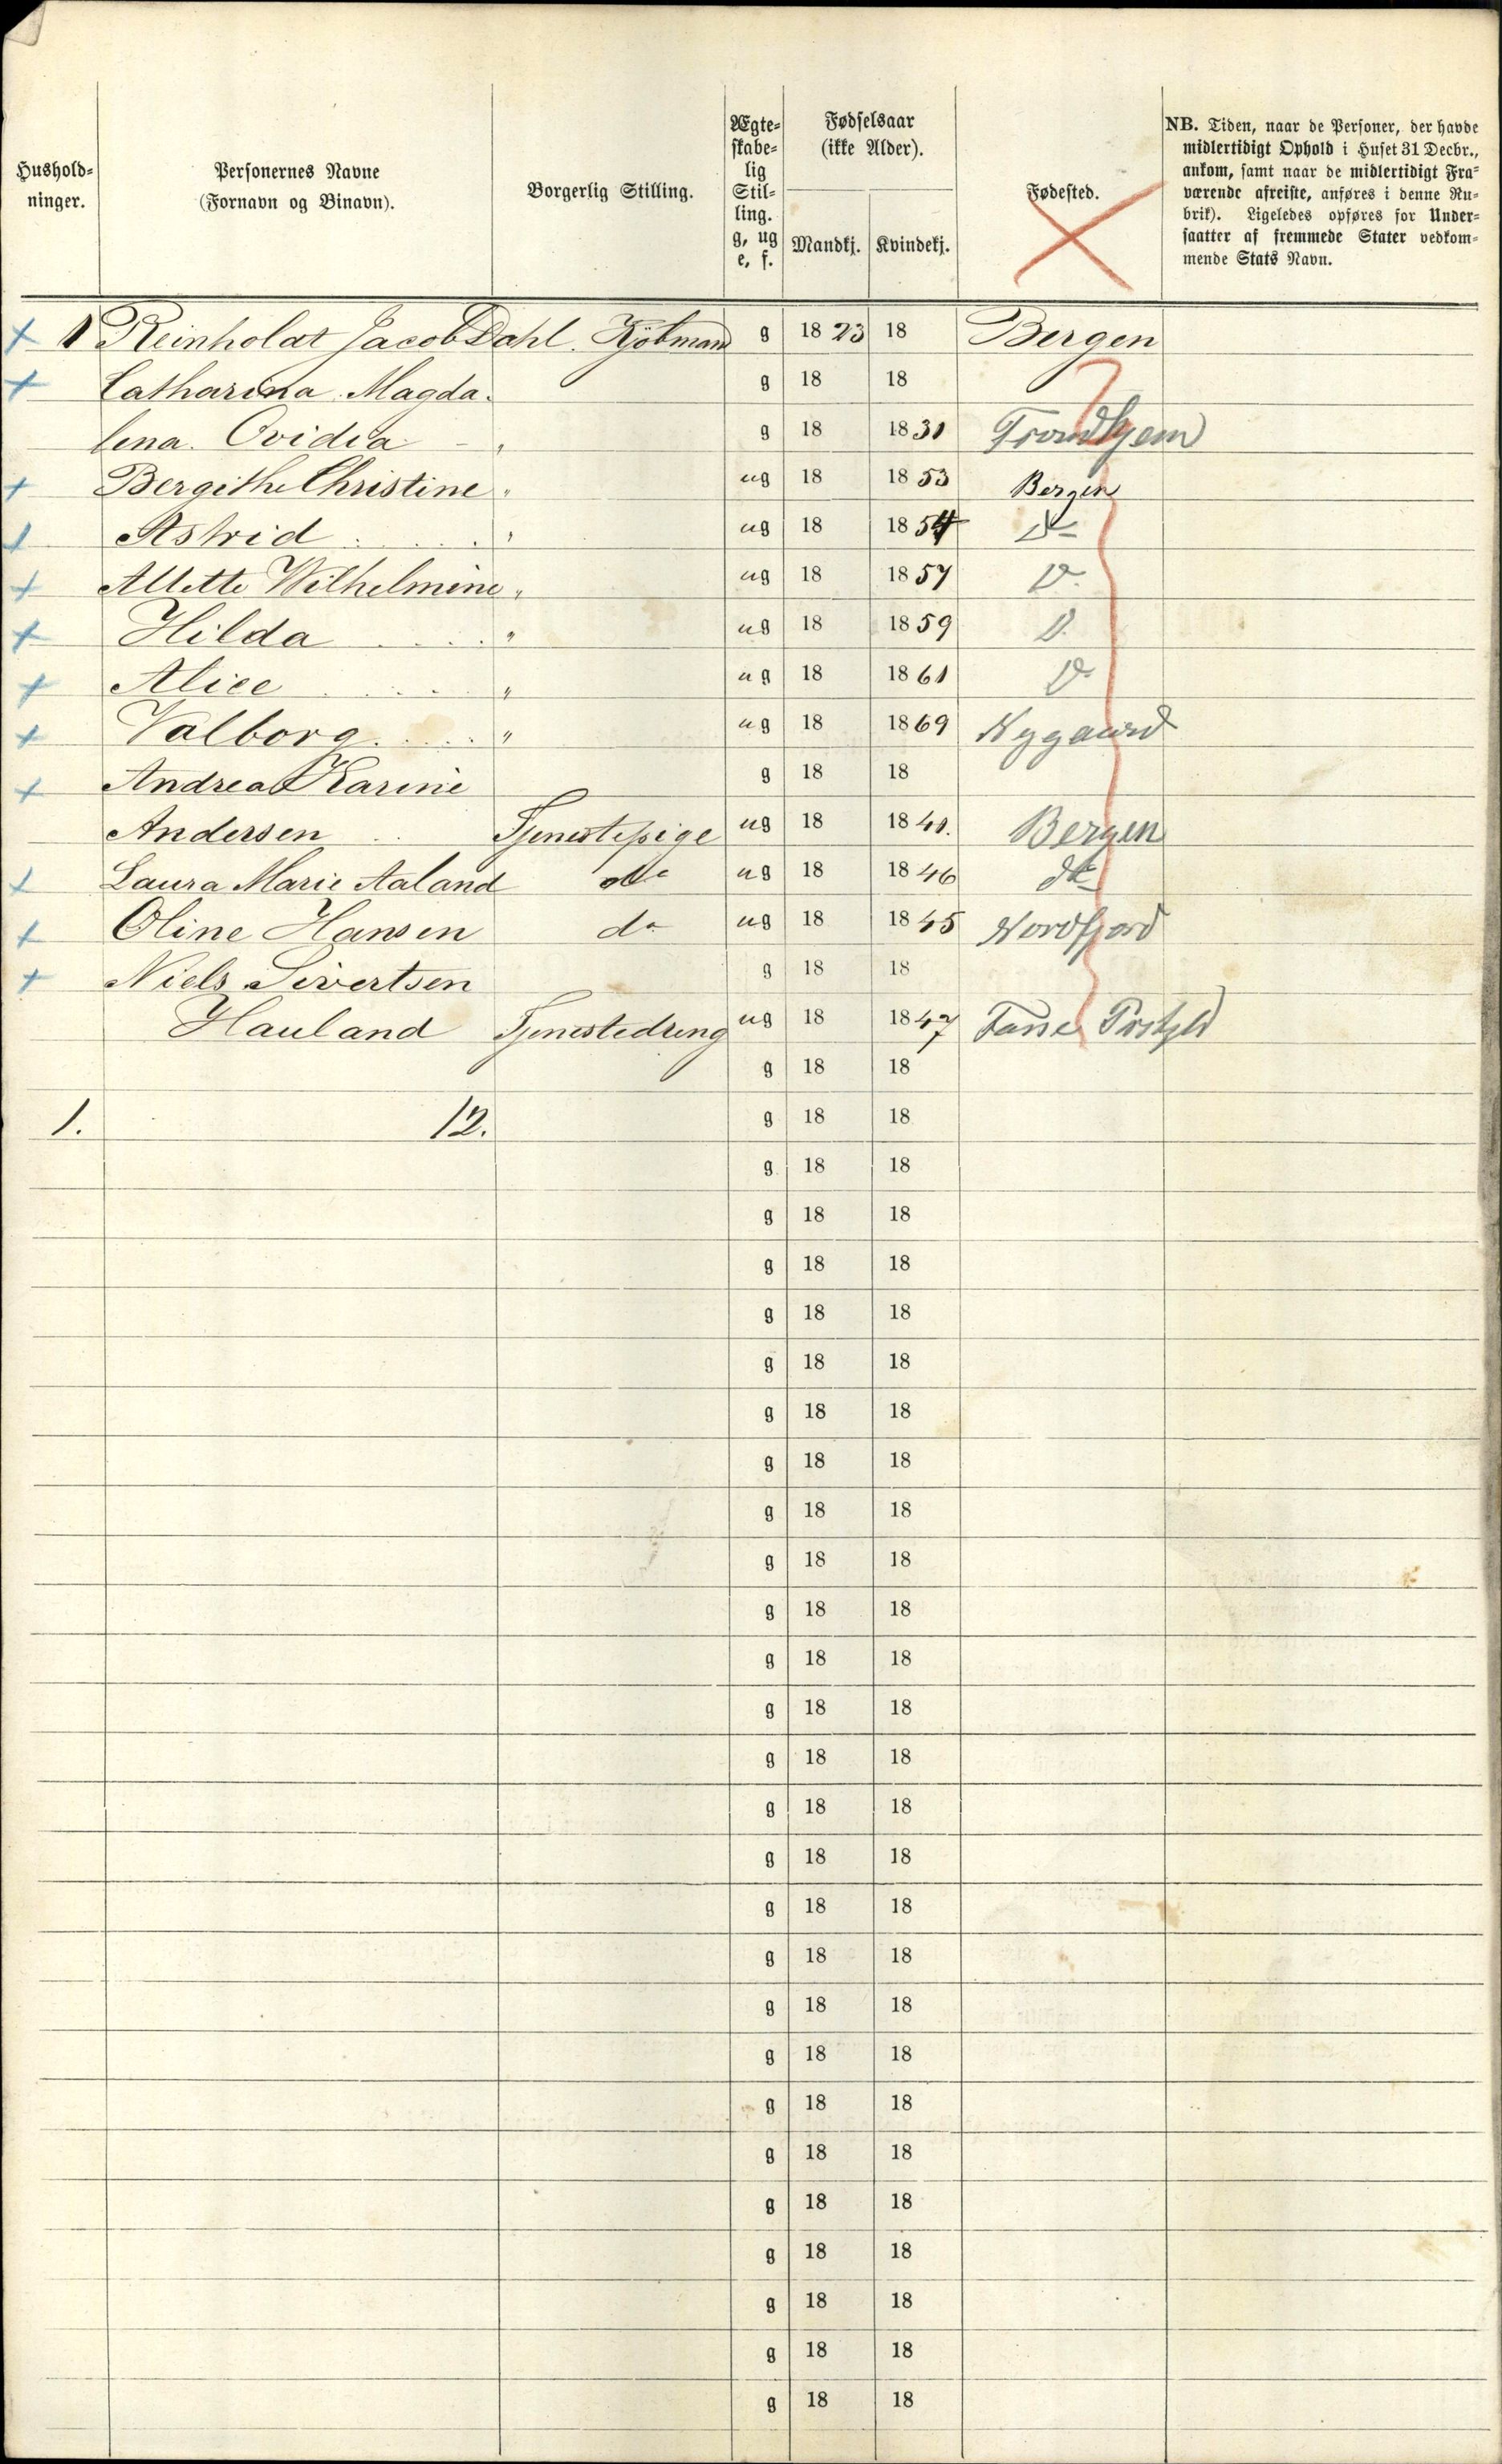 Hushold-
ninger.
Personernes Navne
(Fornavn og Binavn).
Borgerlig Stilling.
Ægte-
skabe-
lig
Stil-
ling.
g, ug
e, f.
Fødselsaar
(ikke Alder).
Mandkj.
Kvindekj.
Fødested.
NB. Tiden, naar de Personer, der havde
midlertidigt Ophold i Huset 31 Decbr.,
ankom, samt naar de midlertidigt Fra-
værende afreiste, anføres i denne Ru-
brik). Ligeledes opføres for Under-
saatter af fremmede Stater vedkom-
mende Stats Navn.
+ 1 Reinholdt Jacob Dahl. Kjøbmand g 1823 18 Bergen
+ Catharina Magda- g 18 18
lena Ovidia - " g 18 1831 Trondhjem
+ Bergithe Christine " ug 18 1853 Bergen
+ Astrid " ug 18 1854 D
+ Allette Wilhelmine " ug 18 1857 D
+ Hilda " ug 18 1859 D
+ Alice " ug 18 1861 D
+ Valborg " ug 18 1869 Nygaard
+ Andrea Karine g 18 18
Andersen Tjenestepige ug 18 1841. Bergen
+ Laura Marie Aaland do ug 18 1846 do
+ Oline Hansen do ug 18 1845 Nordfjord
+ Niels Sivertsen g 18 18
Hauland Tjenestedreng ug 18 1847 Fane
g 18 18
1. 12. g 18 18
g 18 18
g 18 18
g 18 18
g 18 18
g 18 18
g 18 18
g 18 18
g 18 18
g 18 18
g 18 18
g 18 18
g 18 18
g 18 18
g 18 18
g 18 18
g 18 18
g 18 18
g 18 18
g 18 18
g 18 18
g 18 18
g 18 18
g 18 18
g 18 18
g 18 18
g 18 18